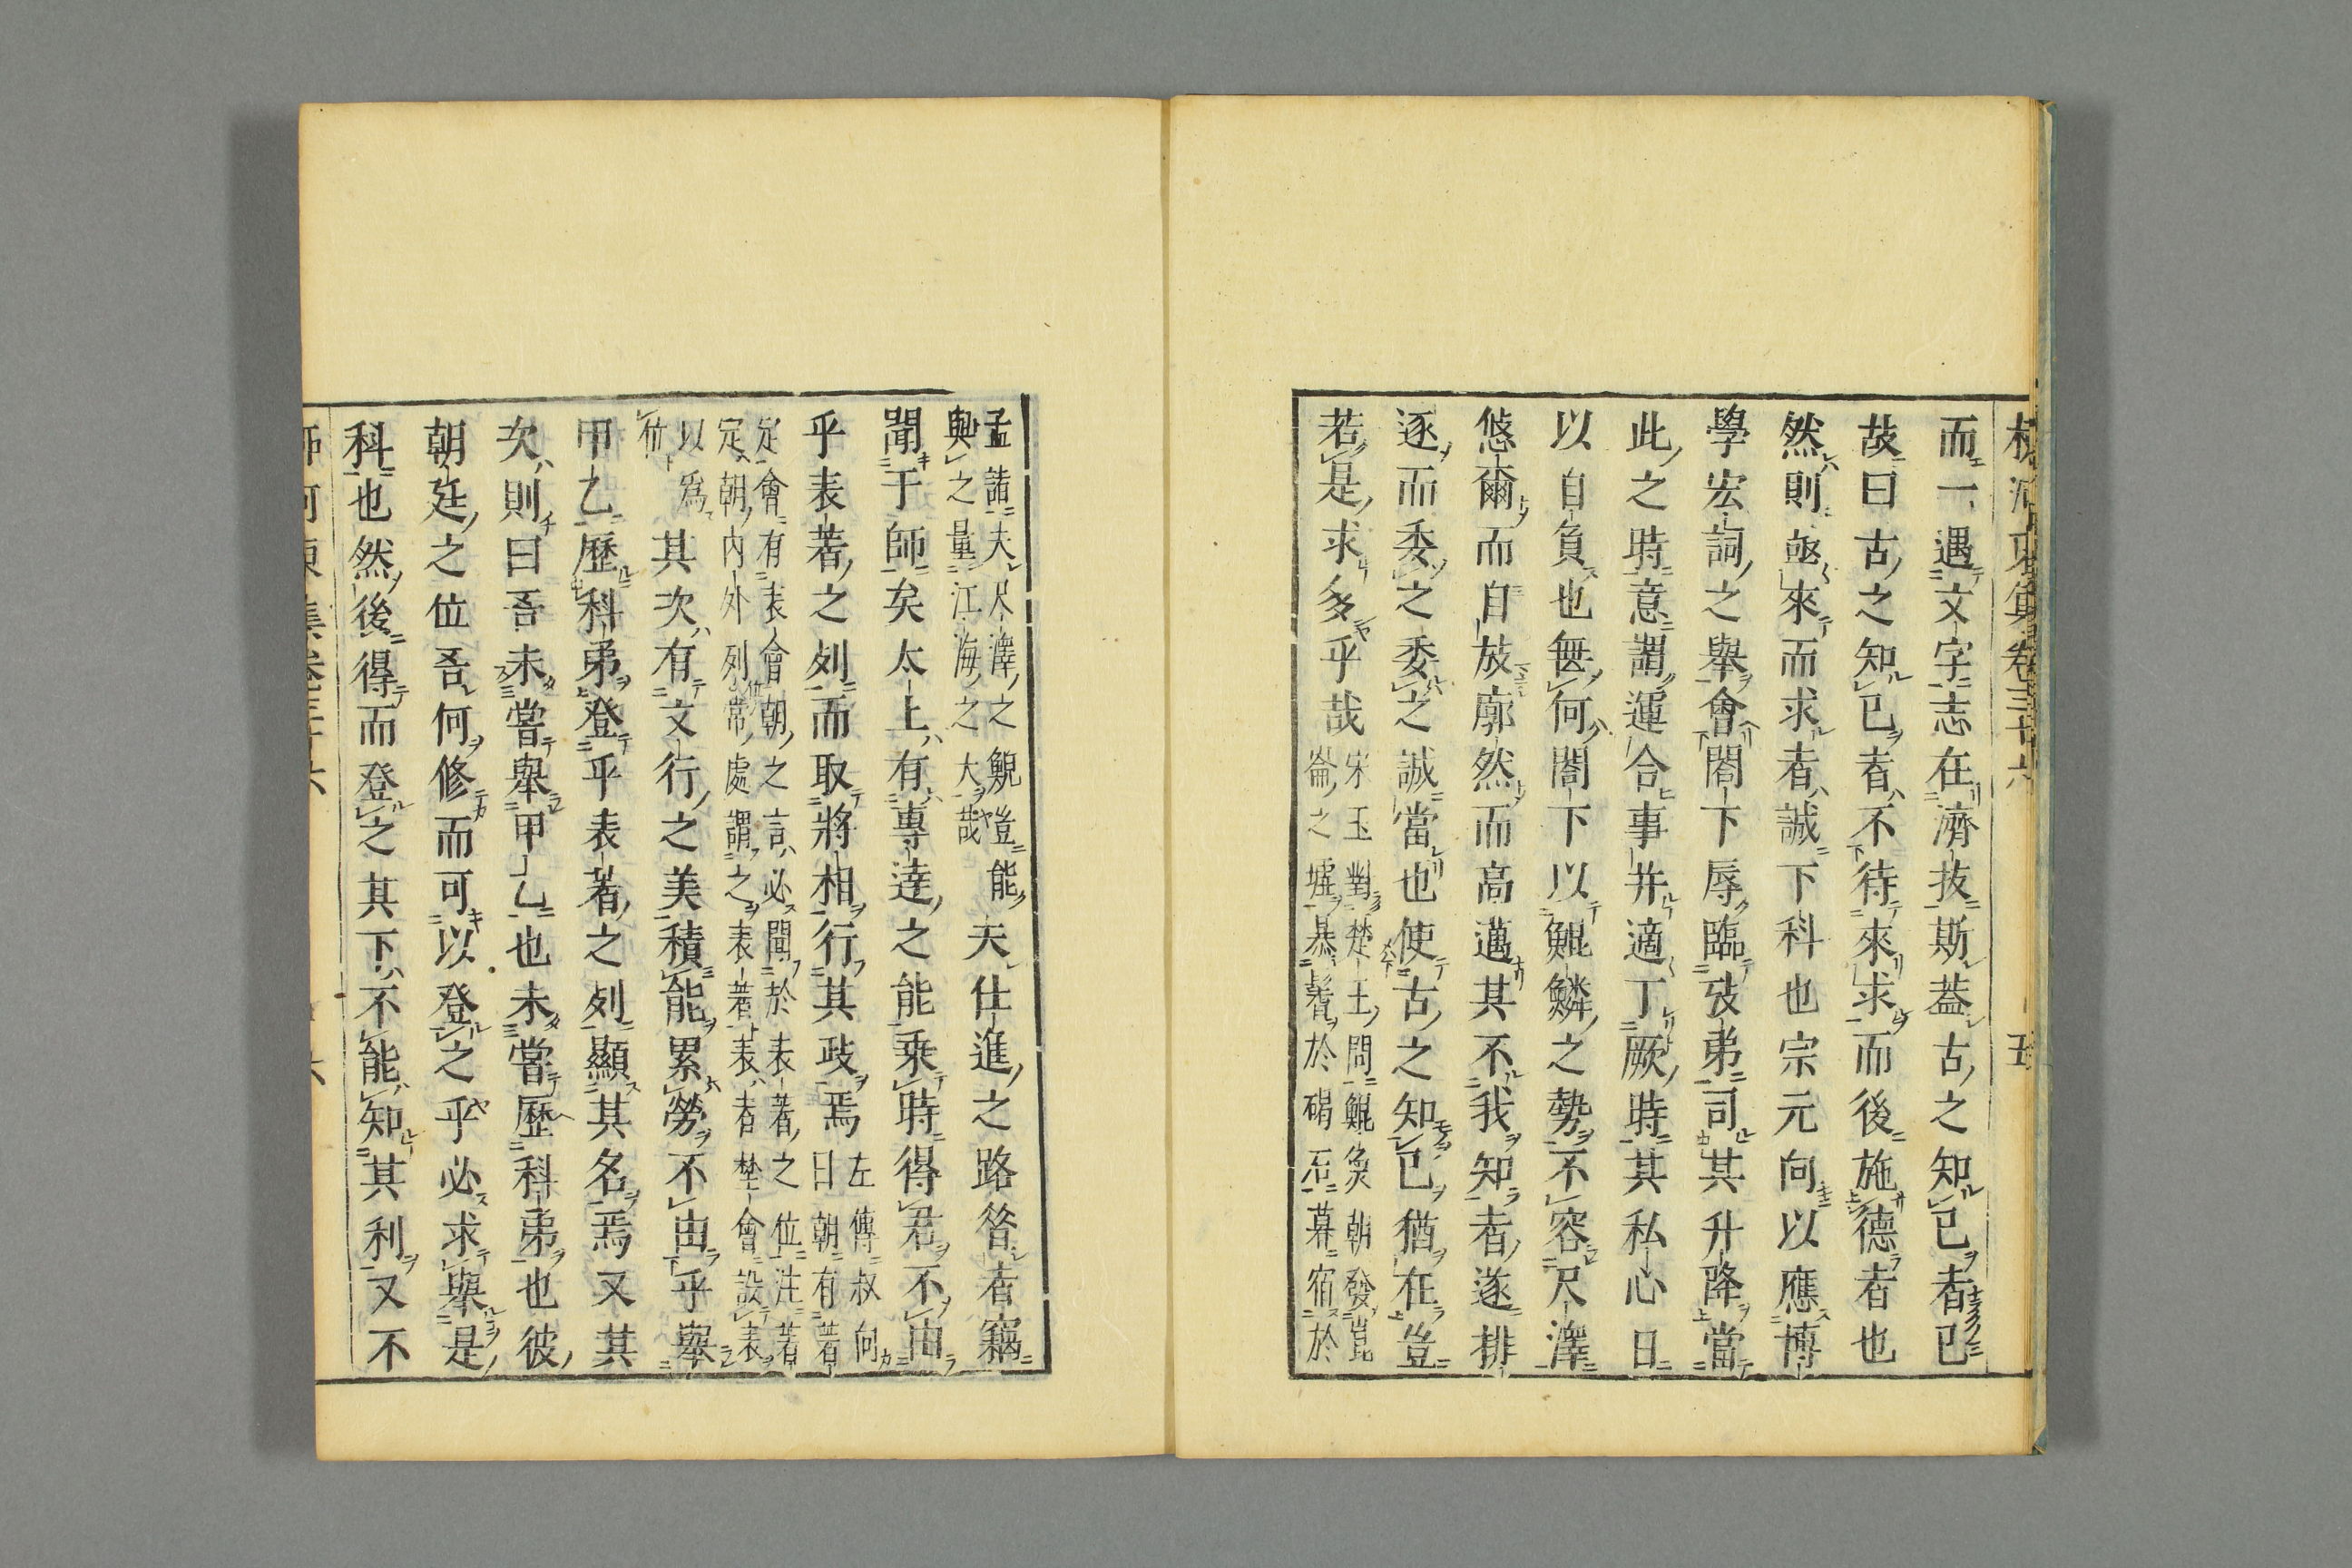 而一遇文字志在濟拔斯蓋古之知已者已
故曰古之知已者不待來求而後施德者也
然則亟來而求者誠下科也宗元向以應博
學宏詞之舉會閤下辱臨攷弟司其升降當
此之時意謂運合事幷適丁厥時其私心日
以自負也無何閤下以鯤鱗之勢不容尺澤
悠爾而自放廓然而高邁其不我知者遂排
逐而委之委之誠當也使古之知已猶在豈
若是求多乎哉
宋玉對楚王問鯤魚朝發崑
崙之墟暴鬐於碣石暮宿於
孟諸夫尺澤之鯢豈能
與之量江海之大哉
夫仕進之路昝者竊
聞于師矣太上有專達之能乘時得君不由
乎表著之列而取將相行其政焉
左傳叔向
曰朝有著
定會有表會朝之言必聞於表著之位注著
定朝內外列位常處謂之表著表者埜會設表
以爲
其次有文行之美積能累勞不由乎舉
甲乙歷科弟登乎表著之列顯其名焉又其
次則曰吾未嘗舉甲乙也未嘗歷科弟也彼
朝廷之位吾何修而可以登之乎必求舉是
科也然後得而登之其下不能知其利又不